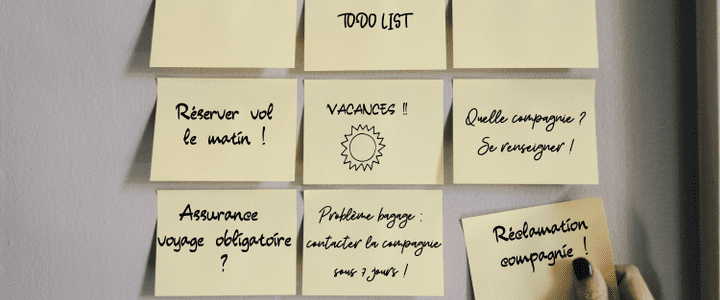 TODO LIST
Réserver vol
le matin !
VACANCES !!
Quelle compagnie ?
Se renseigner !
Assurance
voyage obligatoire
?
Problème bagage :
contacter la compagnie
sous 7 jours !
Réclamation
compagnie !